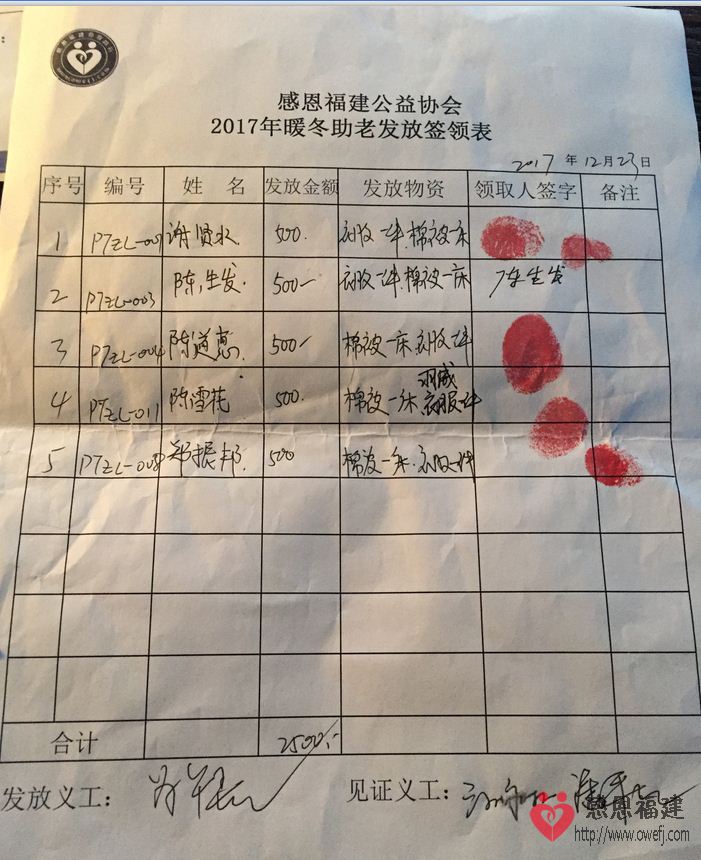 感恩福建公益协会
2017年暖冬助老发放签领表
2017 年 12月23日
序号 编号 姓 名 发放金额 发放物资 领取人签字 备注
1 PTZL-001 谢贤水 500. 衣服一件.棉被一床
2 PTZL-003 陈生发. 500— 衣服一件.棉被一床 陈生发
3 PTZL-004 陈道惠 500— 棉被一床.衣服一件
4 PTZL-011 陈雪花 500. 棉被一床 衣服一件
5 PTZL-008 郑振邦. 500 棉被一床.衣服一件
合计 2500.-
发放义工:
见证义工:
感恩福建
http://www.owefj.com